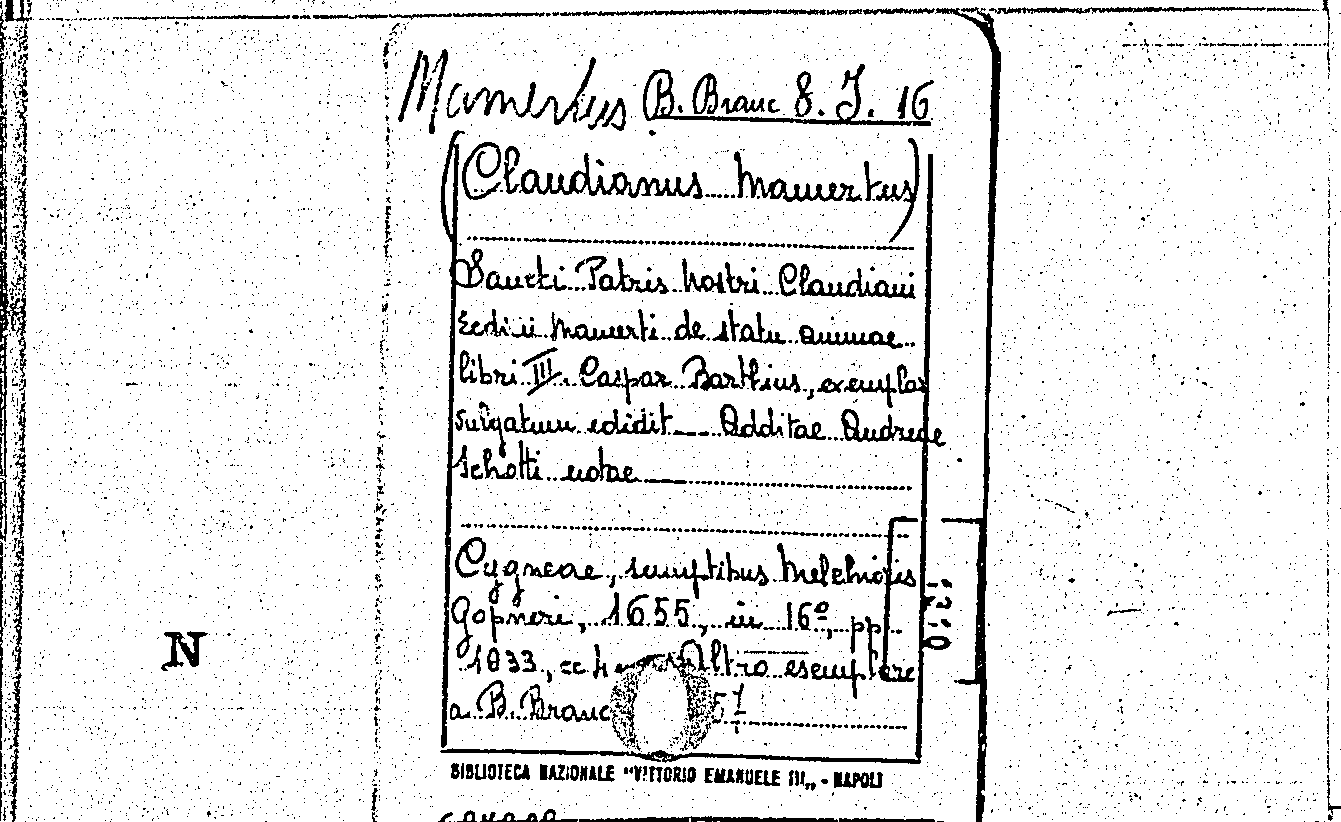 Mamertus B. Branc 8. J. 16
(Claudianus Mamertus)
Sancti Patris Nostri Claudiani
Ecdicii Mamerti de statu animae
libri III. Caspar Barthius, exemplar
vulgatum edidit _ Additae Andreae
Schotti notae
Cygneae, sumptibus Melchioris
Gopneri, 1655, in 16º, pp.
1033, Altro esemplare
a B. Branc 57
BIBLIOTECA NAZIONALE "VITTORIO EMANUELE III„ - NAPOLI
N